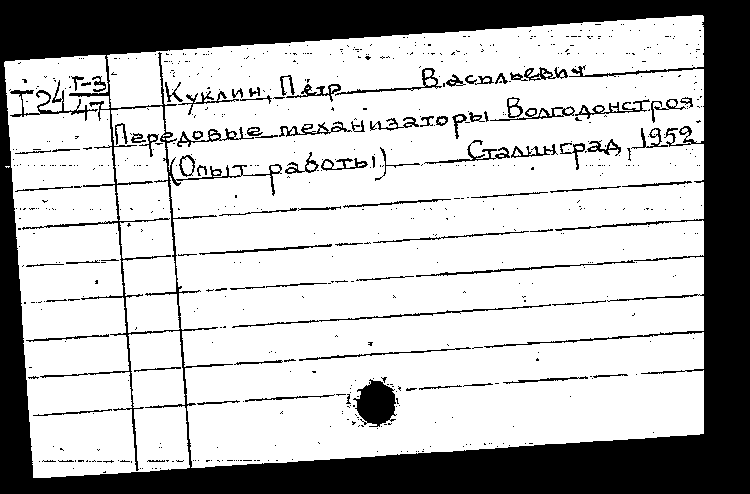 Т24 Т-3/47
Куклин, Пётр Васильевич
Передовые механизаторы Волгодонстроя
(Опыт работы) Сталинград, 1952